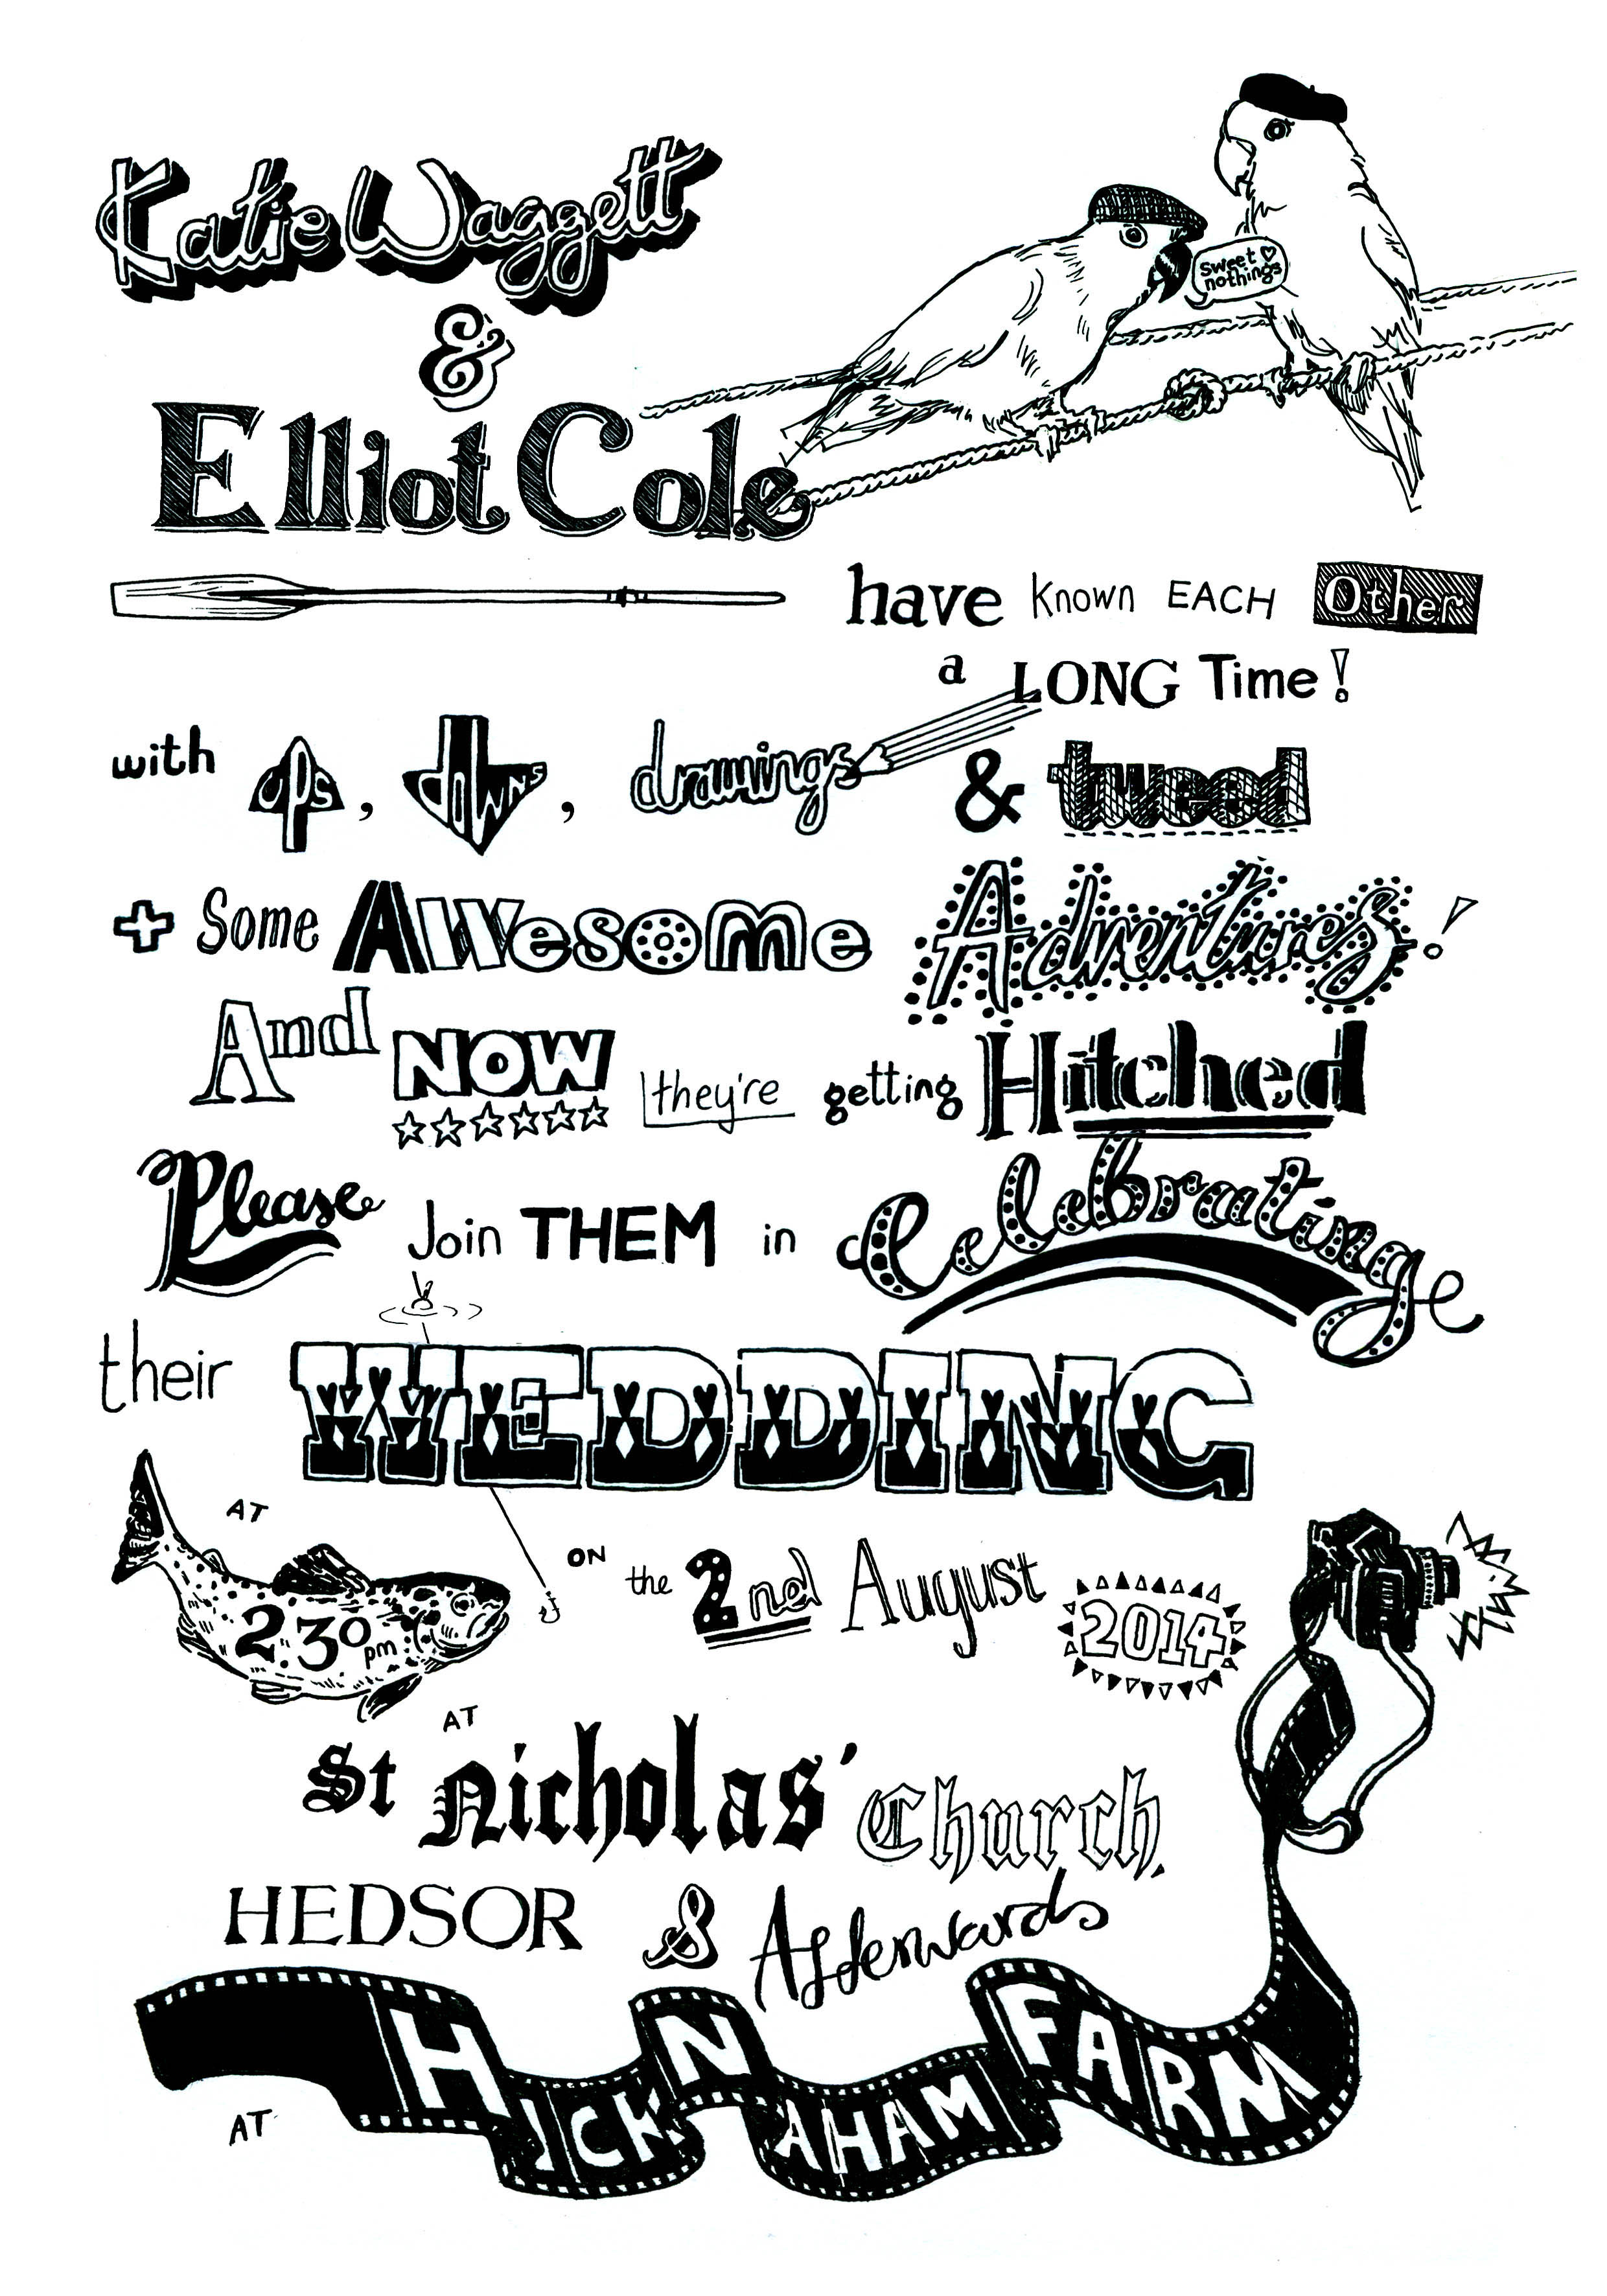 Katie Waggett
Sweet ♡
nothings
&
Elliot Cole
have known EACH Other
a LONG Time!
with ups, downs, drawings & tweed
+ Some AWesome Adventures!
And NOW they're getting Hitched
Please Join THEM in Celebrating
their WEDDING
AT
2.30pm ON the 2nd August 2014
AT
St Nicholas' Church,
HEDSOR & Afterwards
AT HICKNAHAM FARM